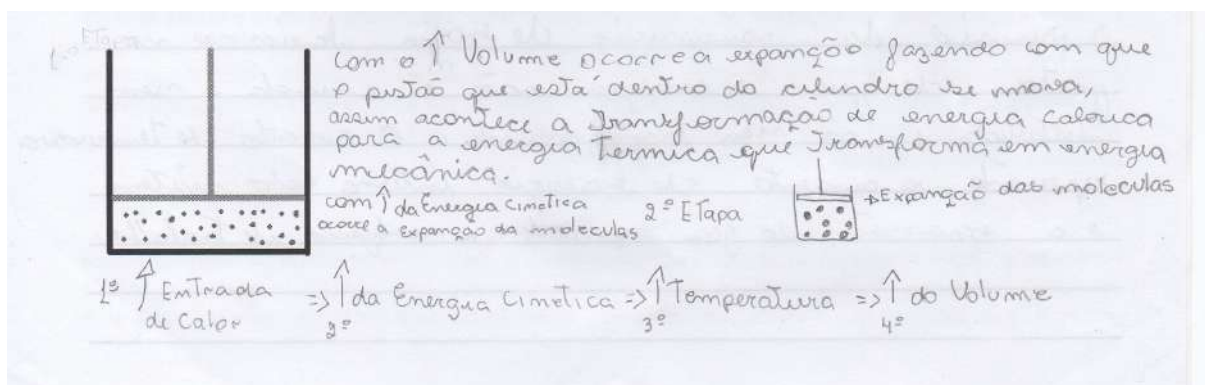 1º Etapa
com o ↑ Volume ocorre a expanção fazendo com que
o pistão que está dentro do cilindro se mova,
assim acontece a Transformação de energia calorica
para a energia Termica que Transforma em energia
mecânica.
com ↑ da Energia Cinetica
ocorre a Expanção da moleculas
2º ETapa
→ Expanção das moleculas
1º ↑ Entrada
de Calor
=> ↑ da Energia Cinetica => ↑ Temperatura => ↑ do Volume
2º 3º 4º